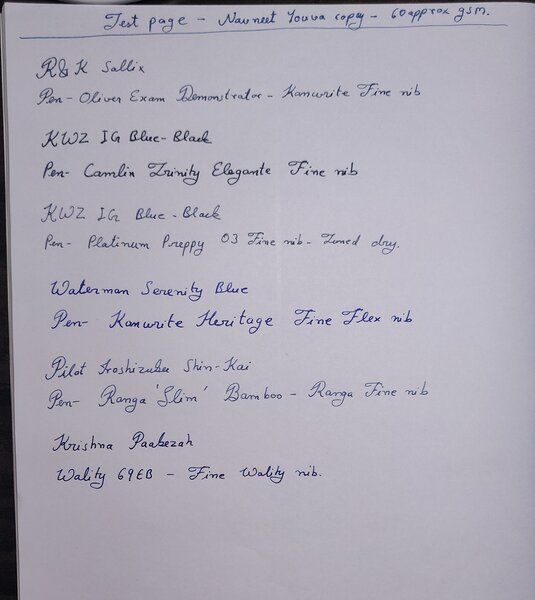 Test page - Navneet Youva copy - 60 approx gsm.
R&K Salix
Pen- Oliver Exam Demonstrator - Kanwrite Fine nib
KWZ IG Blue-Black
Pen- Camlin Trinity Elegante Fine nib
KWZ IG Blue-Black
Pen- Platinum Preppy 03 Fine nib- Tuned dry.
Waterman Serenity Blue
Pen- Kanwrite Heritage Fine Flex nib
Pilot Iroshizuku Shin-Kai
Pen- Ranga 'Slim' Bamboo - Ranga Fine nib
Krishna Paakezah
Wality 69EB - Fine Wality nib.